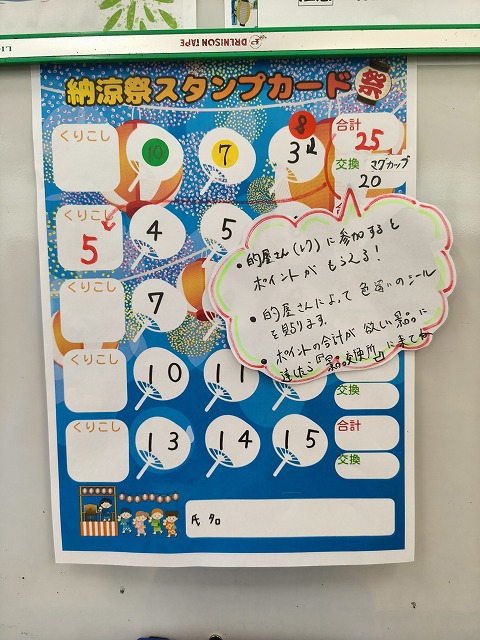 DRENISON TAPE
納涼祭スタンプカード 祭
くりこし 10 7 8 3 合計 25
交換 マグカップ
20
くりこし 5 4 5
くりこし 7
くりこし 10 11
交換
くりこし 13 14 15 合計
交換
氏名
•的屋さん(レク)に参加すると
ポイントがもらえる!
•的屋さんによって色違いのシール
を貼ります。
•ポイントの合計が欲しい景品に
達したら
に来てね